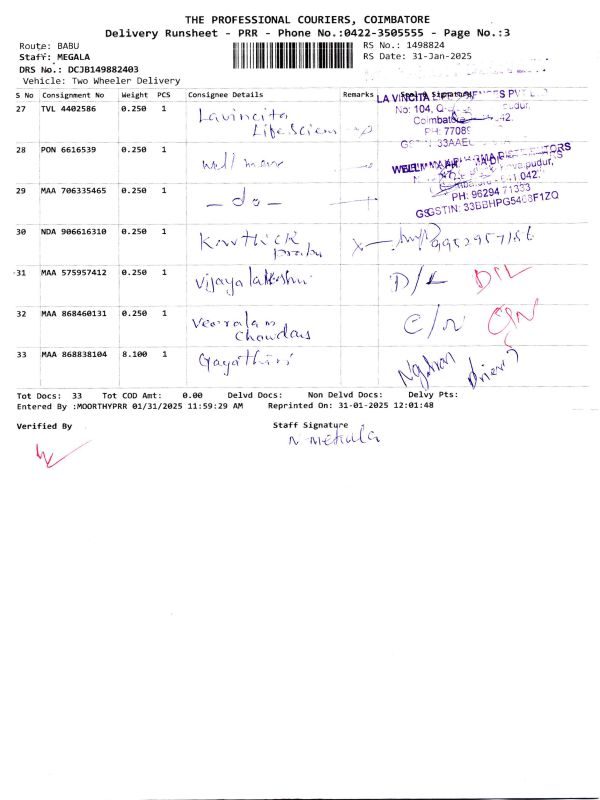 THE PROFESSIONAL COURIERS, COIMBATORE
Delivery Runsheet - PRR - Phone No.:0422-3505555 - Page No.:3
Route: BABU
RS No.: 1498824
Staff: MEGALA
RS Date: 31-Jan-2025
DRS No.: DCJB149882403
Vehicle: Two Wheeler Delivery
S No Consignment No Weight PCS Consignee Details Remarks Seal & Signature
27 TVL 4402586 0.250 1 Lavincita
LifeScien
LA VINCITA PVT
No: 104, pudur,
Coimbatore 42.
PH: 7708
28 PON 6616539 0.250 1 Well
WELL MAA PHARMA DISTRIBUTORS
29 MAA 706335465 0.250 1 - do -
641 042.
PH: 96294 71333
GSTIN: 33BBHPG5468F1ZQ
30 NDA 906616310 0.250 1 Karthick
31 MAA 575957412 0.250 1 Vijayalakshmi D/L D/L
32 MAA 868460131 0.250 1 Veeralam C/N C/N
33 MAA 868838104 8.100 1 Gayathiri
Tot Docs: 33 Tot COD Amt: 0.00 Delvd Docs: Non Delvd Docs: Delvy Pts:
Entered By :MOORTHYPRR 01/31/2025 11:59:29 AM Reprinted On: 31-01-2025 12:01:48
Verified By Staff Signature